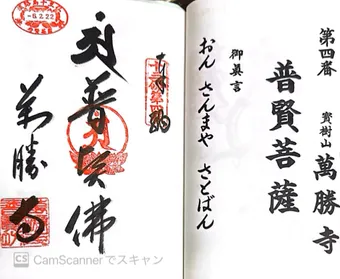 第四番
寶樹山 萬勝寺
普賢菩薩
御眞言
おん さんまや さとばん
奉納
普賢佛
萬勝寺
-6.2.22
CS CamScannerでスキャン